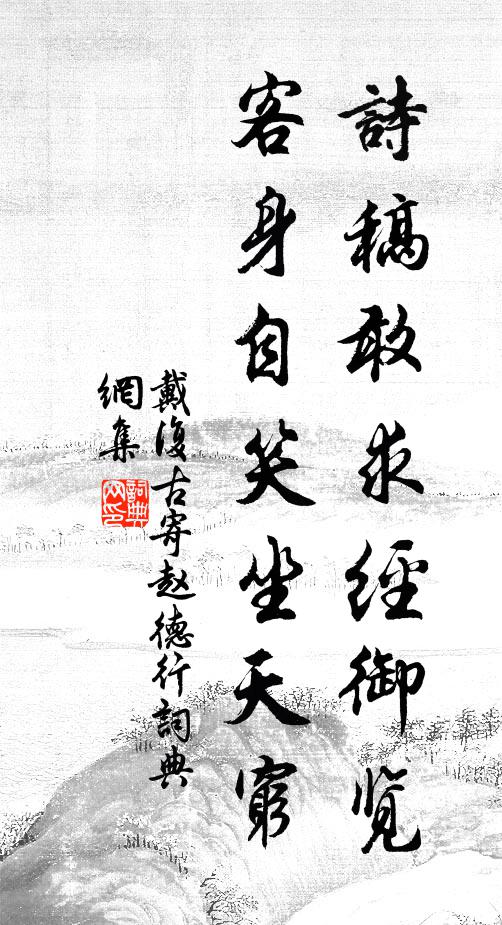 詩稿敢求經御览
客身自笑坐天窮
戴復古寄赵德行詞典
網集
詞典
网印